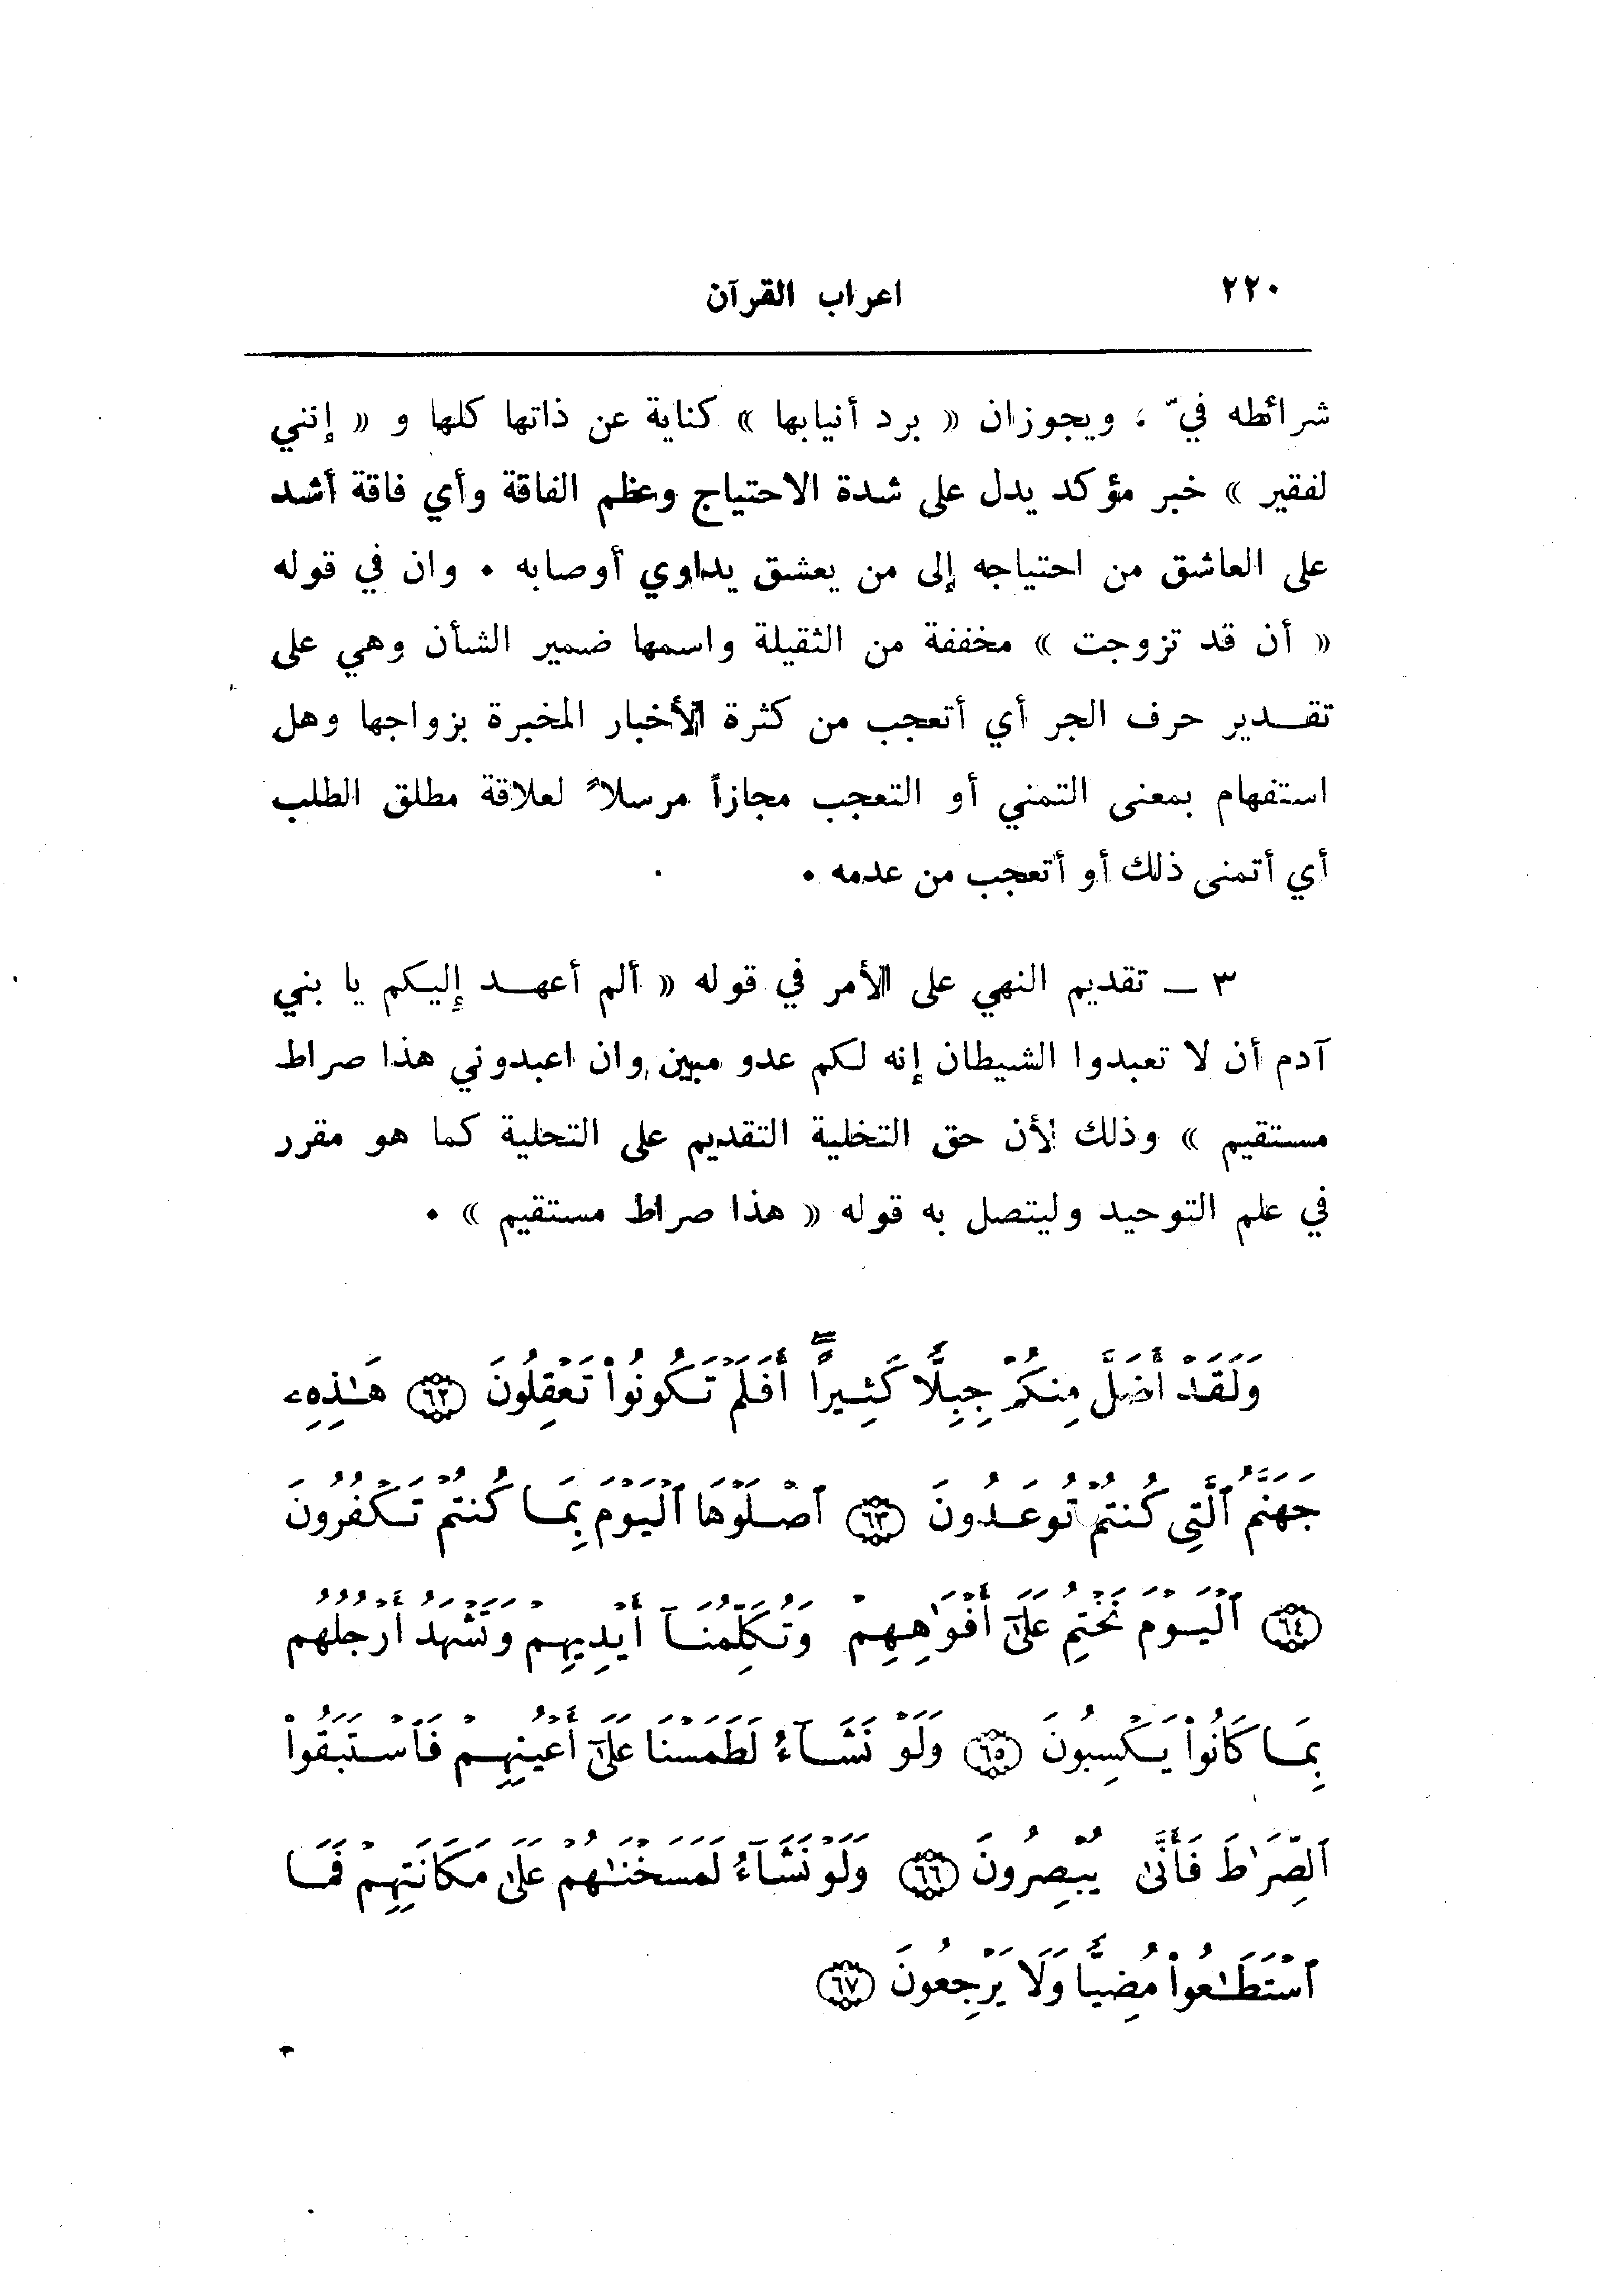 ٢٢٠ اعراب القرآن
شرائطه فيّ ، ويجوزان « برد أنيابها » كناية عن ذاتها كلها و « إنني
لفقير » خبر مؤكد يدل على شدة الاحتياج وعظم الفاقة وأي فاقة أشد
على العاشق من احتياجه إلى من يعشق يداوي أوصابه . وان في قوله
« أن قد تزوجت » مخففة من الثقيلة واسمها ضمير الشأن وهي على
تقدير حرف الجر أي أتعجب من كثرة الأخبار المخبرة بزواجها وهل
استفهام بمعنى التمني أو التعجب مجازاً مرسلاً لعلاقة مطلق الطلب
أي أتمنى ذلك أو أتعجب من عدمه .
٣ ــ تقديم النهي على الأمر في قوله « ألم أعهد إليكم يا بني
آدم أن لا تعبدوا الشيطان إنه لكم عدو مبين وان اعبدوني هذا صراط
مستقيم » وذلك لأن حق التخلية التقديم على التحلية كما هو مقرر
في علم التوحيد وليتصل به قوله « هذا صراط مستقيم » .
وَلَقَدْ أَضَلَّ مِنكُمْ جِبِلًّا كَثِيرًا ۖ أَفَلَمْ تَكُونُواْ تَعْقِلُونَ ﴿٦٢﴾ هَٰذِهِۦ
جَهَنَّمُ ٱلَّتِى كُنتُمْ تُوعَدُونَ ﴿٦٣﴾ ٱصْلَوْهَا ٱلْيَوْمَ بِمَا كُنتُمْ تَكْفُرُونَ
﴿٦٤﴾ ٱلْيَوْمَ نَخْتِمُ عَلَىٰٓ أَفْوَٰهِهِمْ وَتُكَلِّمُنَآ أَيْدِيهِمْ وَتَشْهَدُ أَرْجُلُهُم
بِمَا كَانُواْ يَكْسِبُونَ ﴿٦٥﴾ وَلَوْ نَشَآءُ لَطَمَسْنَا عَلَىٰٓ أَعْيُنِهِمْ فَٱسْتَبَقُواْ
ٱلصِّرَٰطَ فَأَنَّىٰ يُبْصِرُونَ ﴿٦٦﴾ وَلَوْ نَشَآءُ لَمَسَخْنَٰهُمْ عَلَىٰ مَكَانَتِهِمْ فَمَا
ٱسْتَطَٰعُواْ مُضِيًّا وَلَا يَرْجِعُونَ ﴿٦٧﴾